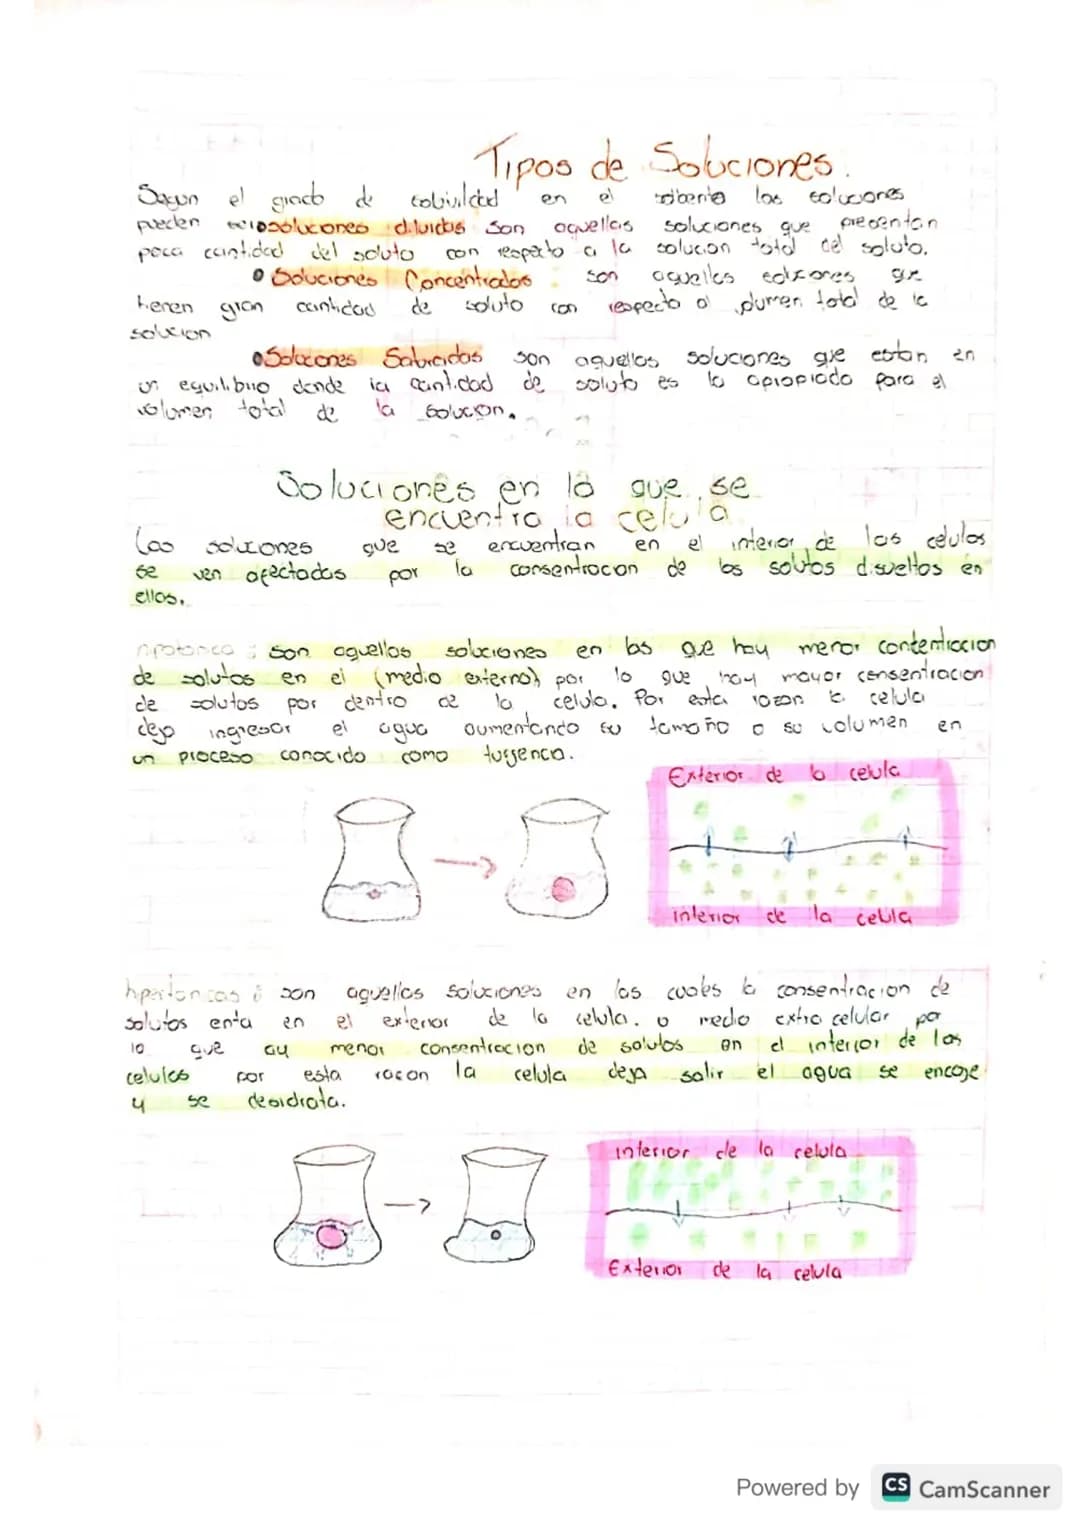 Tipos de Soluciones.
Segun el grado de solubilidad en el solvente las soluciones
pueden soluciones diluidas son aquellas soluciones que presentan
poca cantidad del soluto con respecto a la solucion total del soluto.
• Soluciones Concentrados : son aquellas soluciones que
tienen gran cantidad de soluto con respecto al volumen total de la
solucion
• Soluciones Saturadas son aquellas soluciones que estan en
un equilibrio donde la cantidad de soluto es la apropiado para el
volumen total de la solucion.
Soluciones en la que se
encuentra la celula
Las soluciones que se encuentran en el interior de las celulas
se ven afectadas por la consentracion de los solutos disueltos en
ellas.
son aquellas soluciones en las que hay menor
de solutos en el (medio externo) por lo que hay mayor consentracion
de solutos por dentro de la celula. Por esta razon la celula
deja ingresar el agua aumentando su tamaño o su volumen en
un proceso conocido como
Exterior de la celula
interior de la celula
hipertonicas : son aquellas soluciones en las cuales la consentracion de
solutos enta en el exterior de la celula. o medio extra celular por
lo que ay menor consentracion de solutos en el interior de las
celulas por esta razon la celula deja salir el agua se encoje
y se desidrata.
interior de la celula
Exterior de la celula
Powered by CS CamScanner